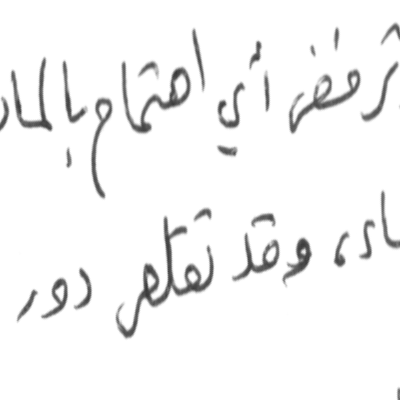 ترفض أي اهتمام بالماد
ـاد، وقد تقلص دور